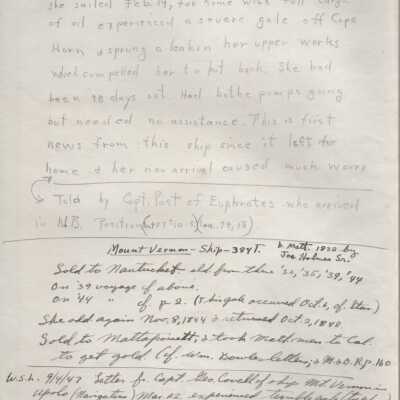 she sailed Feb. 14, for home with full cargo
of oil experienced a severe gale off Cape
Horn & sprung a leak in her upper works
which compelled her to put back. She had
been 98 days out. Had bothe pumps going
but needed no assistance. This is first
news from this ship since it left for
home & her non arrival caused much worry
Told by Capt. Post of Euphrates who arrived
in N.B. Position
Mount Vernon - Ship - 384 T. b. Matt. 1822 by
Joe Holmes Sr.
Sold to Nantucket sld from there '32, '35, '39, '44
On '39 voyage cf above.
On '44 " cf. p. 2.
She sld again Nov. 8, 1844 & returned Oct. 2, 1848
Sold to Mattapoisett; & took Matt. men to Cal.
to get gold (cf. Wm. Bowles letters; p. 160
W.S.L. 9/4/43 Letter fr. Capt. Geo. Covell of ship Mt Vernon in
Apolo (Navigators) Mar. 22 experienced